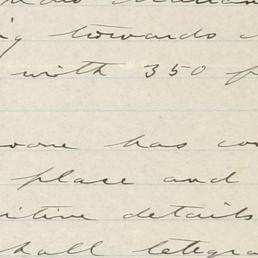 ing towards
with 350
one has co
place and
itive details
hall telegra